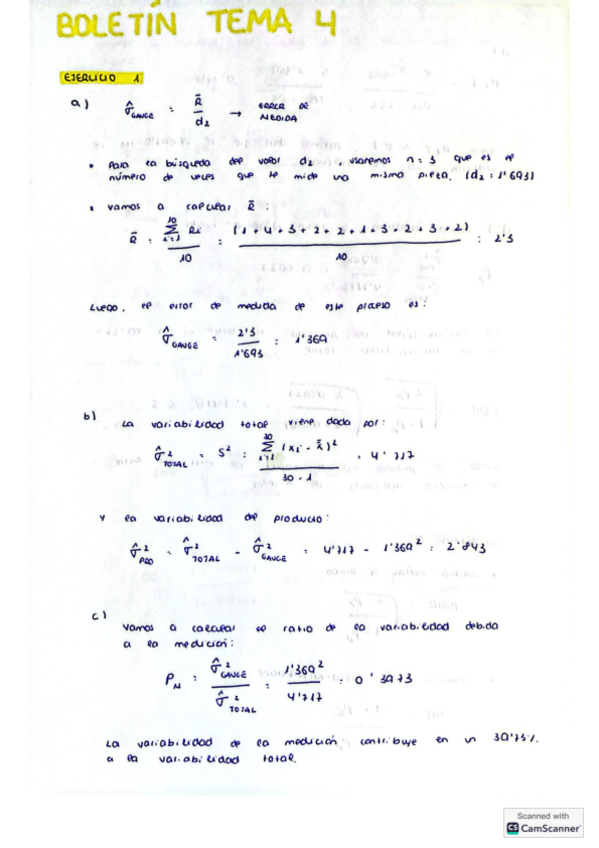 BOLETÍN TEMA 4
EJERCICIO 1
a) σ̂ GAUGE = R̄ / d2 → ERROR DE MEDIDA
• Para la búsqueda del valor d2, usaremos n = 3 que es el
número de veces que se mide una misma pieza. (d2 = 1'693)
• Vamos a calcular R̄:
R̄ = Σ(i=1, 10) Ri / 10 = (1 + 4 + 3 + 2 + 2 + 1 + 3 + 2 + 3 + 2) / 10 = 2'3
Luego, el error de medida de este proceso es:
σ̂ GAUGE = 2'3 / 1'693 = 1'369
b) La variabilidad total viene dada por:
σ̂² TOTAL = S² = Σ(i=1, 30) (xi - x̄)² / 30 - 1 = 4'717
Y la variabilidad del producto:
σ̂² PRO = σ̂² TOTAL - σ̂² GAUGE = 4'717 - 1'369² = 2'843
c)
Vamos a calcular el ratio de la variabilidad debida
a la medición:
PM = σ̂² GAUGE / σ̂² TOTAL = 1'369² / 4'717 = 0'3973
La variabilidad de la medición contribuye en un 39'73%
a la variabilidad total.
Scanned with
CS CamScanner